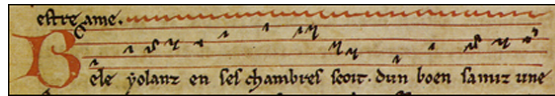 estre ame.
Bele yolanz en ses chambres seoit. dun boen samiz une